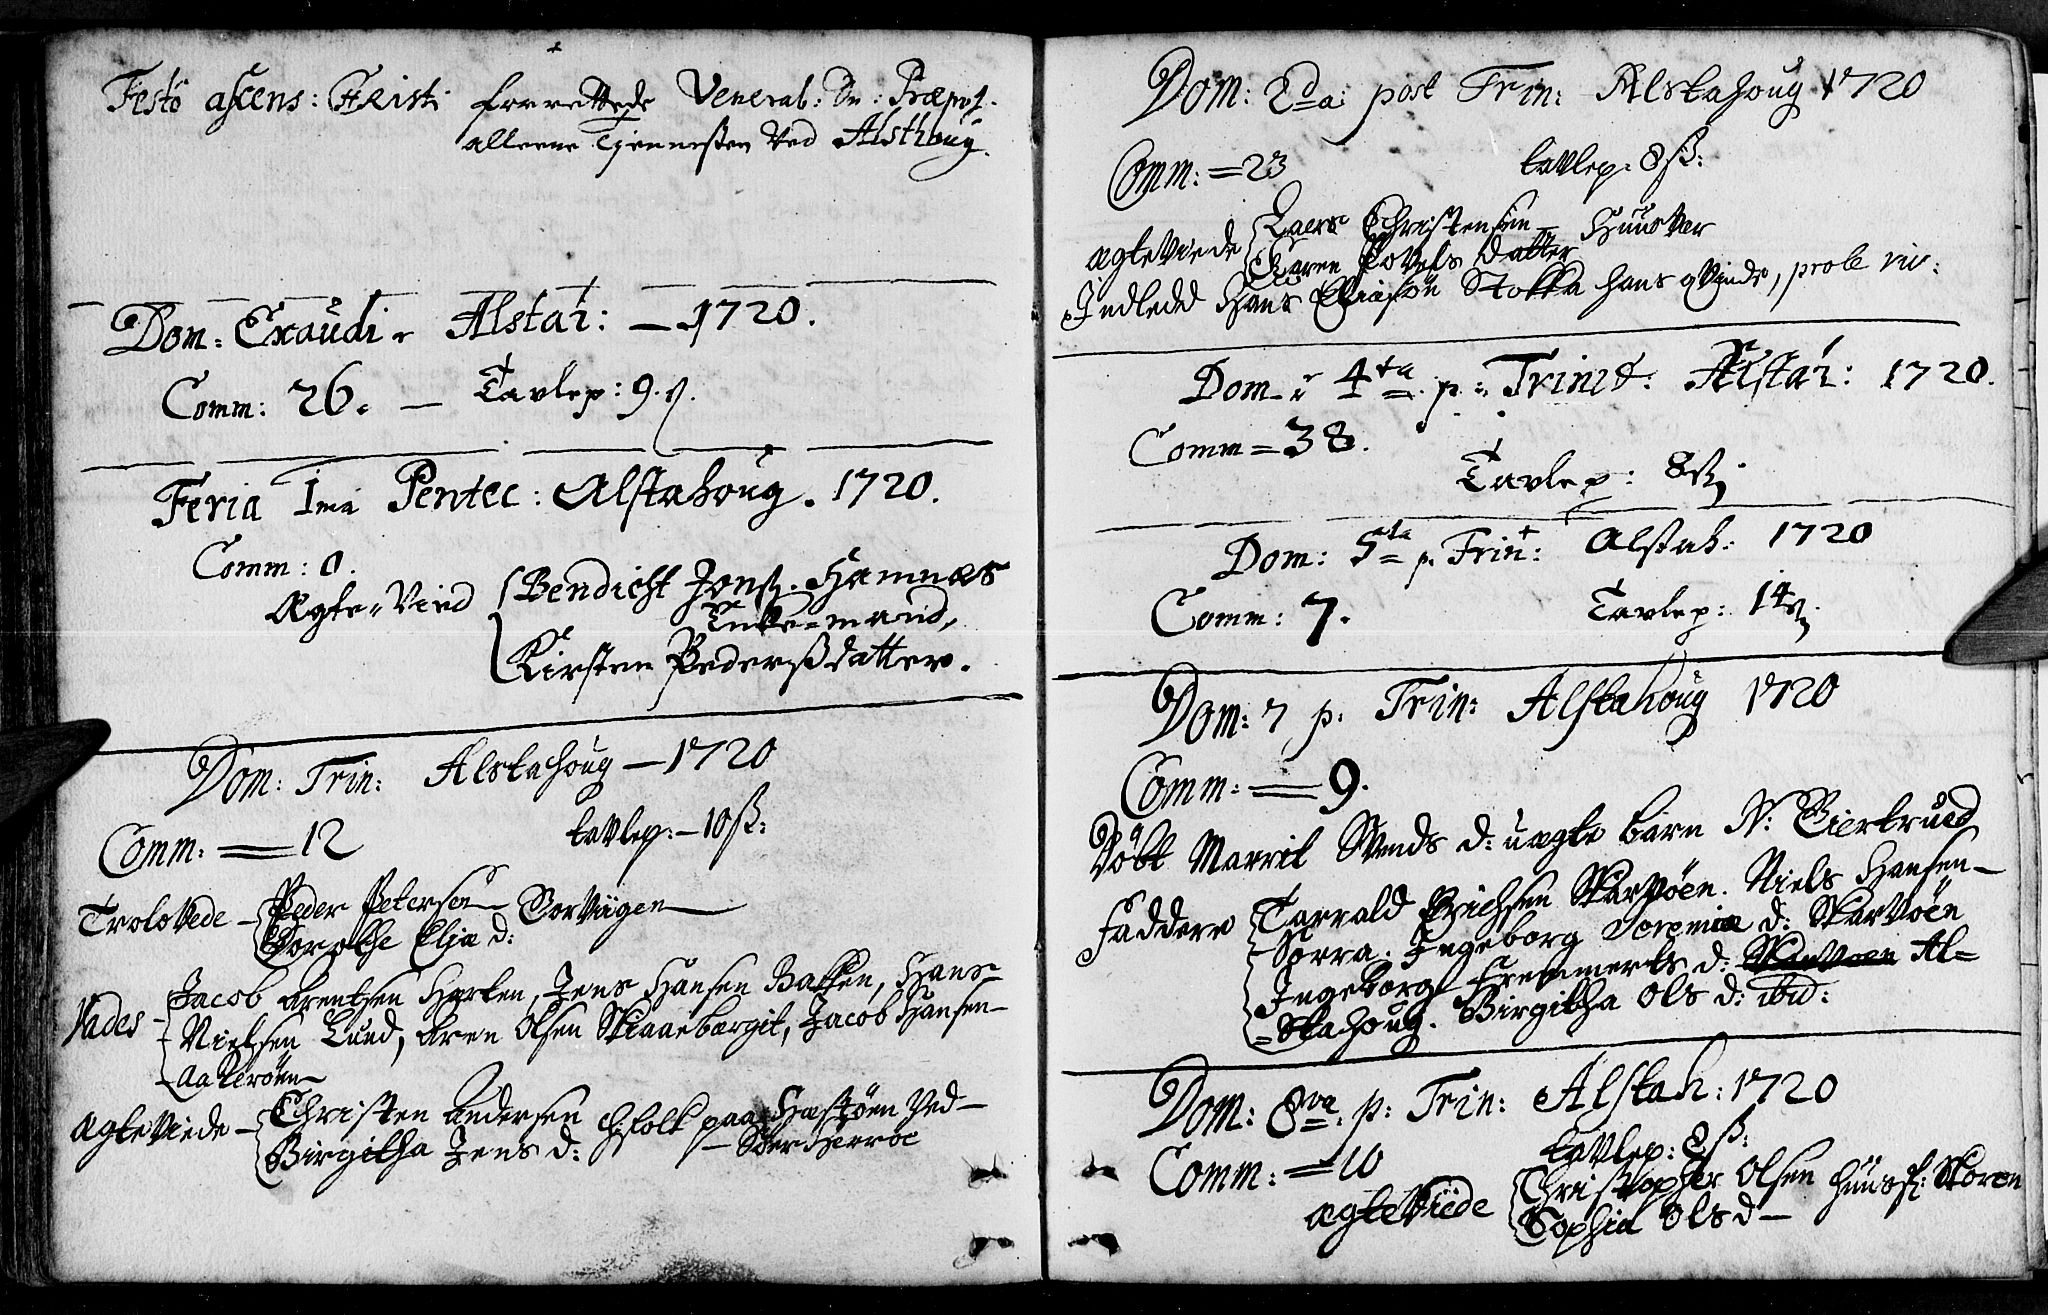 Festo ascens: Christi forrettede Veneral: Dn: Præpos.
alleene Tjennesten Ved Alsthoug.
Dom: Exaudi Alstah: — 1720.
Comm: 26. — Tavlep: 9 ß.
Feria 1ma Pentec: Alstahoug. 1720.
Comm: 0.
Ægte-Vied Bendicht Jonß. Hamnæs
Enke-mand,
Kirsten Pederßdatter.
Dom: Trin: Alstahoug — 1720
Comm: = 12 tavlep: — 10 ß:
TroloVede — Peder Petersen — SorVægen —
Dorothe Eliæ d:
Vades — Jacob Arentsen Harten, Jens Hansen Bakken, Hans
Nielsen Lund, Aren Olsen Skiaaebærgit, Jacob Hansen —
— Aakerøen —
ÆgteViede — Christen Andersen Hfolk paa Hæstøen Ved —
Birgitha Jens d: — Sør Herrøe
Dom: 2da: post Trin: Alstahoug 1720
Comm: = 23 tavlep: 8 ß:
ÆgteViede Laers Christensen — Huusvær
Karen Povels Datter
Indledd Hans Eliæsøn Stokka hans qvinde, prole viv:
Dom: 4ta p: Trinit: Alstah: 1720.
Comm = 38.
Tavlep: 8 ß.
Dom: 5ta p. Trin: Alstah: 1720
Comm: 7. Tavlep: 14 ß.
Dom: 7 p. Trin: Alstahoug 1720
Comm: = 9.
Døbt Marrit Svends d: uægte barn N: Giertrued
Faddere Tarrald Erichsen Skarvøen. Niels Hansen —
Sørra. Ingeborg Joremiæ d: Skarvøen
Ingeborg Fremmerts d: Skarvoen Al=
=stahoug. Birgitha Ols d: ibid:
Dom: 8va: p: Trin: Alstah: 1720
Comm: = 10 tavlep: 8 ß:
ÆgteViede Christopher Olsen huusf: Skoren
Sophia Ols d —